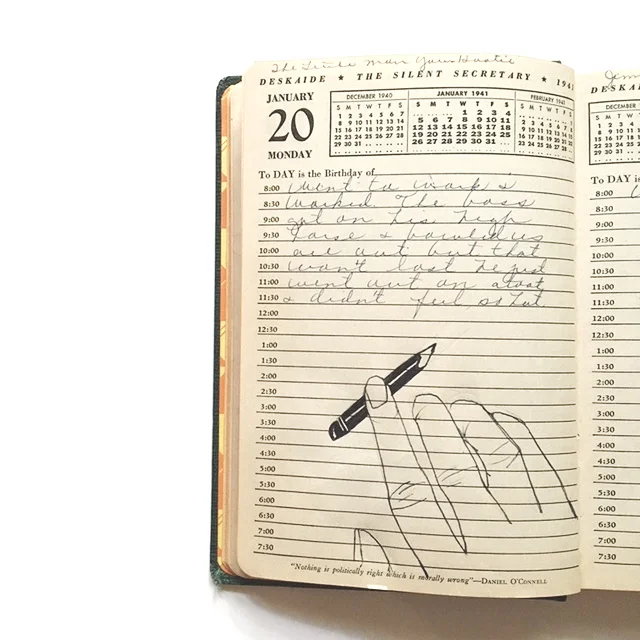 The Man
DESKAIDE ★ THE SILENT SECRETARY ★ 1941
JANUARY
20
MONDAY
DECEMBER 1940
S M T W T F S
1 2 3 4 5 6 7
8 9 10 11 12 13 14
15 16 17 18 19 20 21
22 23 24 25 26 27 28
29 30 31
JANUARY 1941
S M T W T F S
1 2 3 4
5 6 7 8 9 10 11
12 13 14 15 16 17 18
19 20 21 22 23 24 25
26 27 28 29 30 31
FEBRUARY 1941
S M T W T F S
To DAY is the Birthday of
8:00 Went to work &
8:30 worked The boss
9:00 got on his high
9:30 horse & bawled us
10:00 all out but that
10:30 won't last he just
11:00 went out on a toot
11:30 & didn't feel so hot
12:00
12:30
1:00
1:30
2:00
2:30
3:00
3:30
4:00
4:30
5:00
5:30
6:00
6:30
7:00
7:30
"Nothing is politically right which is morally wrong"—DANIEL O'CONNELL
DESKAI
DECEMBER
S M T
1 2 3
8 9 10
15 16 17
22 23 24
29 30 31
To DAY is
8:00
8:30
9:00
9:30
10:00
10:30
11:00
11:30
12:00
12:30
1:00
1:30
2:00
2:30
3:00
3:30
4:00
4:30
5:00
5:30
6:00
6:30
7:00
7:30